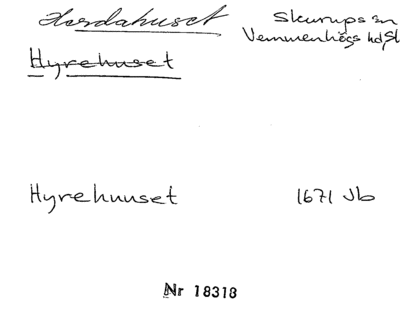 Herdahuset Skurups sn
Vemmenhögs hd, Sk
Hyrehuset
Hyrehuuset 1671 Jb
Nr 18318